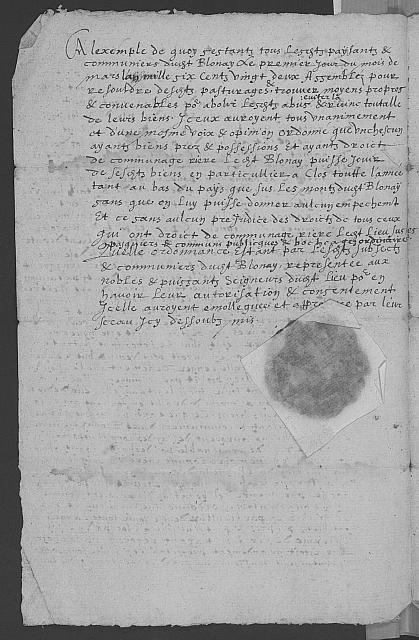 A lexemple de quoy sestants tous lesdts paysants &
communiers dudt Blonay Le premier jour du mois de
mars lan mille six Cents vingt deux Assemblez pour
resoudre desdts pasturages, trouver moyens propres
& convenables po abolir lesdts abus & ruine toutalle
de leurs biens Iceux auroyent tous unanimement
et d'une mesme voix & opinion ordonné que ung chescun
ayants biens prez & possessions Et ayants droict
de communage riere ledt Blonay puisse Jouir
de sesdts biens en particullier a Clos toutte lannee
tant au bas du pays que sus les monts dudt Blonay
sans que on luy puisse donner aulcun empeschemt
Et ce sans aulcun prejudice des droicts de tous ceux
qui ont droict de communage riere ledt lieu sus es
pasquiers & communs publicques &
Quelle ordonnance estant par lesdts subjects
& communiers dudt Blonay representee aux
nobles & puissants Seigneurs dudt lieu po en
havoir leur autorisation & consentement
Icelle auroyent emologuee et par leur
sceau Icy dessoubz mis